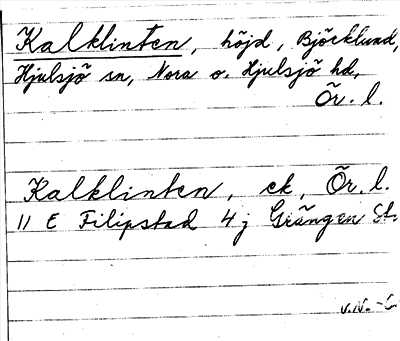 Kalklinten, höjd, Björklund,
Hjulsjö sn, Nora o. Hjulsjö hd,
Ör. l.
Kalklinten, ek, Ör. l.
11 E Filipstad 4 j Grängen St.